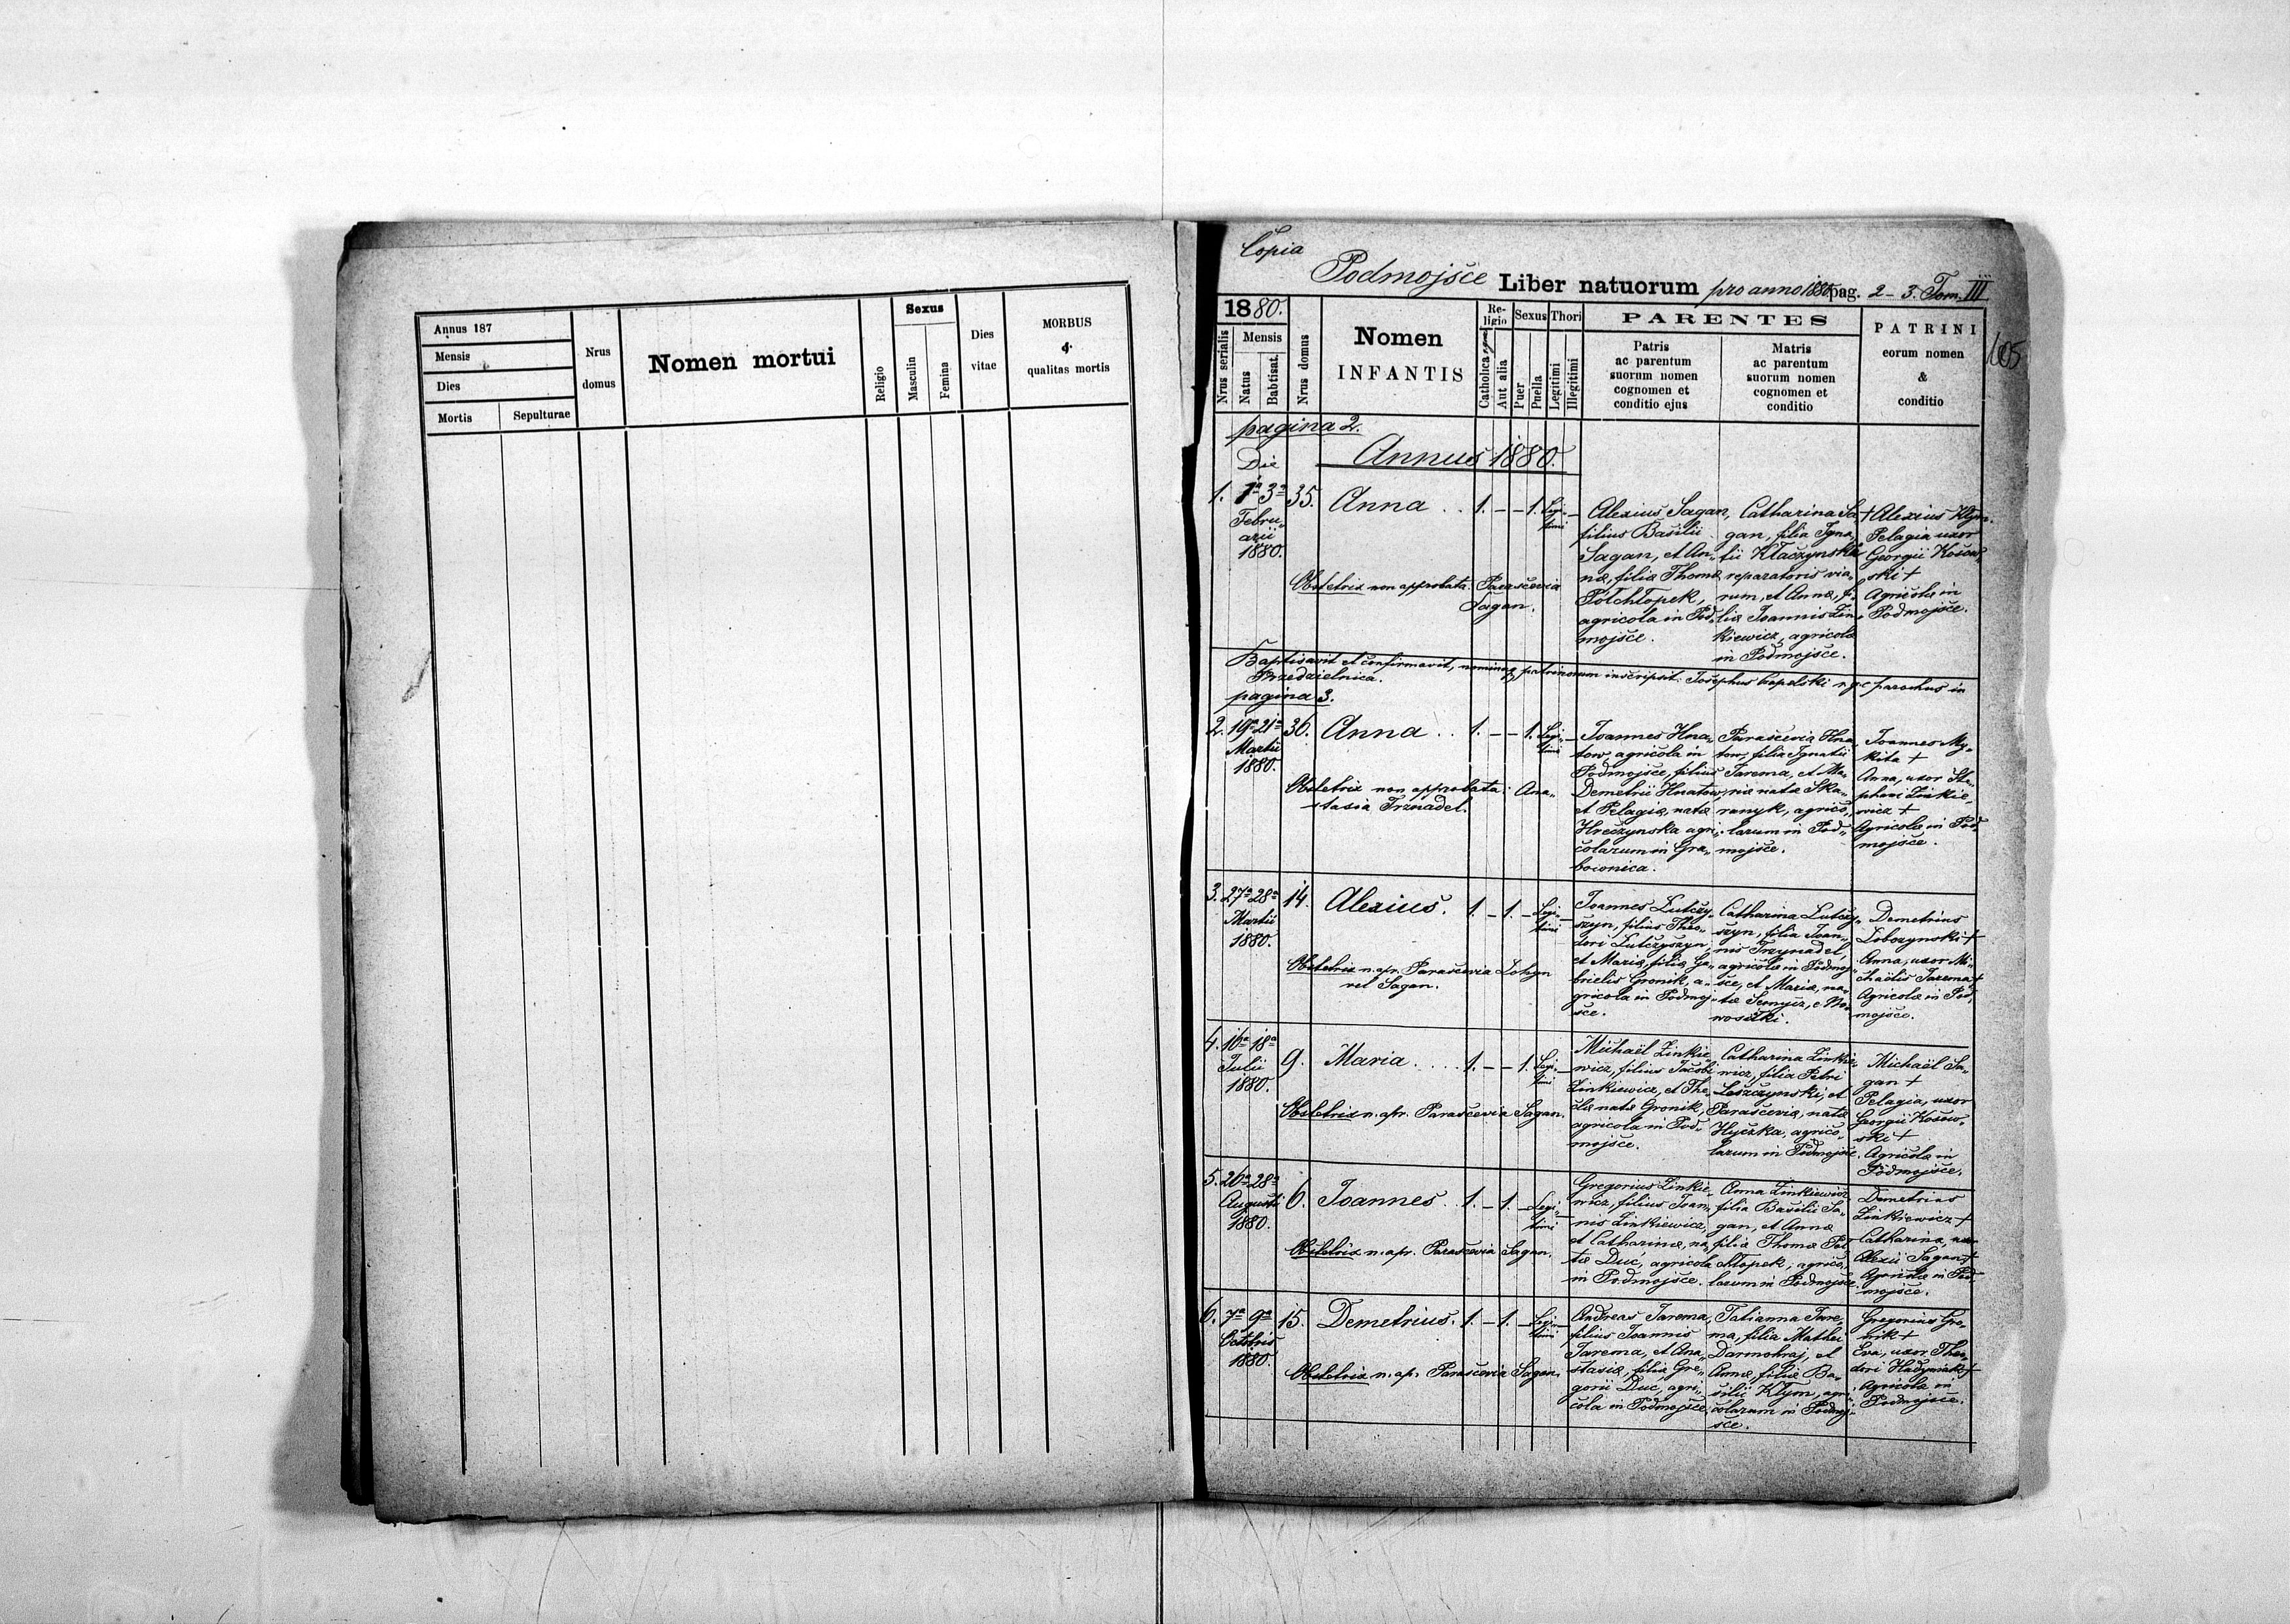 Annus 187
Mensis
Dies
Mortis
Sepulturae
Nrus
domus
Nomen mortui
Religio
Sexus
Masculin
Femina
Dies
vitae
MORBUS
&
qualitas mortis
Copia
Podmojsce Liber natuorum pro anno 1880 pag. 2-3. Tom. III
105
1880.
Nrus serialis
Mensis
Natus
Babtisat.
Nrus domus
Nomen
INFANTIS
Re-
ligio
Catholica
Aut alia
Sexus
Puer
Puella
Thori
Legitimi
Illegitimi
PARENTES
Patris
ac parentum
suorum nomen
cognomen et
conditio ejus
Matris
ac parentum
suorum nomen
cognomen et
conditio
PATRINI
eorum nomen
&
conditio
pagina 2.
Annus 1880.
Die
1. 1a 3a 35. Anna . . 1. – – 1. Legi-
timi –
Febru-
arii
1880.
Obstetrix non approbata: Parascevia
Sagan.
Alexius Sagan,
filius Basilii
Sagan, et An-
næ, filiæ Thomæ
Półchłopek,
agricola in Pod-
mojsce.
Catharina Sa-
gan, filia Igna-
tii Kłaczynski
reparatoris via-
rum, et Annæ, fi-
liæ Joannis Zin-
kiewicz, agricolæ
in Podmojsce.
+ Alexius Kłym.
Pelagia uxor
Georgii Kosow-
ski +
Agricolæ in
Podmojsce.
Baptisavit et confirmavit, nominaq. patrinorum inscripsit: Josephus parochus in
Brzedzielnica.
pagina 3.
2. 19a 21a 36. Anna . . 1. – – 1. Legi-
timi –
Martii
1880.
Obstetrix non approbata: Ana-
stasia Trznadel.
Joannes Hna-
tow, agricola in
Podmojsce, filius
Demetrii Hnatow,
et Pelagiæ, natæ
Hreczynska agri-
colarum in Gra-
bownica.
Parascevia Hna-
tow, filia Ignatii
Jarema, et Ma-
riæ natæ Ska-
ranyk, agrico-
larum in Pod-
mojsce.
Joannes My-
kita +
Anna, uxor Ste-
phani Zinkie-
wicz +
Agricolæ in Pod-
mojsce.
3. 27a 28a 14. Alexius. 1. – 1. – Legi-
timi –
Martii
1880.
Obstetrix n. apr. Parascevia Lohyn
vel Sagan.
Joannes Lutczy-
szyn, filius Theo-
dori Lutczyszyn,
et Mariæ, filiæ Ga-
brielis Gronik, a-
gricola in Podmoj-
sce.
Catharina Lutczy-
szyn, filia Joan-
nis Trzynadel,
agricolæ in Podmoj-
sce, et Mariæ, na-
tæ Semysz, e No-
wosiłki.
Demetrius
Lobozynski +
Anna, uxor Mi-
chaëlis Jarema +
Agricolæ in Pod-
mojsce.
4. 16a 18a 9. Maria . . . . 1. – – 1. Legi-
timi
Julii
1880.
Obstetrix n. apr. Parascevia Sagan.
Michaël Zinkie-
wicz, filius Jacobi
Zinkiewicz, et The-
clæ natæ Gronik,
agricola in Pod-
mojsce.
Catharina Zinkie-
wicz, filia Petri
Leszczynski, et
Parasceviæ, natæ
Hyczka, agrico-
larum in Podmojsce.
Michaël Sa-
gan +
Pelagia, uxor
Georgii Kosow-
ski +
Agricolæ in
Podmojsce.
5. 26a 28a 6. Joannes . . 1. – 1. – Legi-
timi –
Augusti
1880.
Obstetrix n. apr. Parascevia Sagan.
Gregorius Zinkie-
wicz, filius Joan-
nis Zinkiewicz,
et Catharinæ, na-
tæ Duć, agricola
in Podmojsce.
Anna Zinkiewicz
filia Basilii Sa-
gan, et Annæ
filiæ Thomæ Pół-
chłopek, agrico-
larum in Podmojsce.
Demetrius
Zinkiewicz +
Catharina, uxor
Alexii Sagan +
Agricolæ in Pod-
mojsce.
6. 7a 9a 15. Demetrius. 1. – 1. – Legi-
timi –
Octobris
1880.
Obstetrix n. ap. Parascevia Sagan.
Andreas Jarema,
filius Joannis
Jarema, et Ana-
stasiæ, filiæ Gre-
gorii Duc, agri-
cola in Podmojsce.
Tatianna Jare-
ma, filia Mathei
Darmohraj, et
Annæ, filiæ Ba-
silii Kłym, agri-
colarum in Podmoj-
sce.
Gregorius Gro-
nik +
Eva, uxor Theo-
dori Hadyniak +
Agricolæ in
Podmojsce.